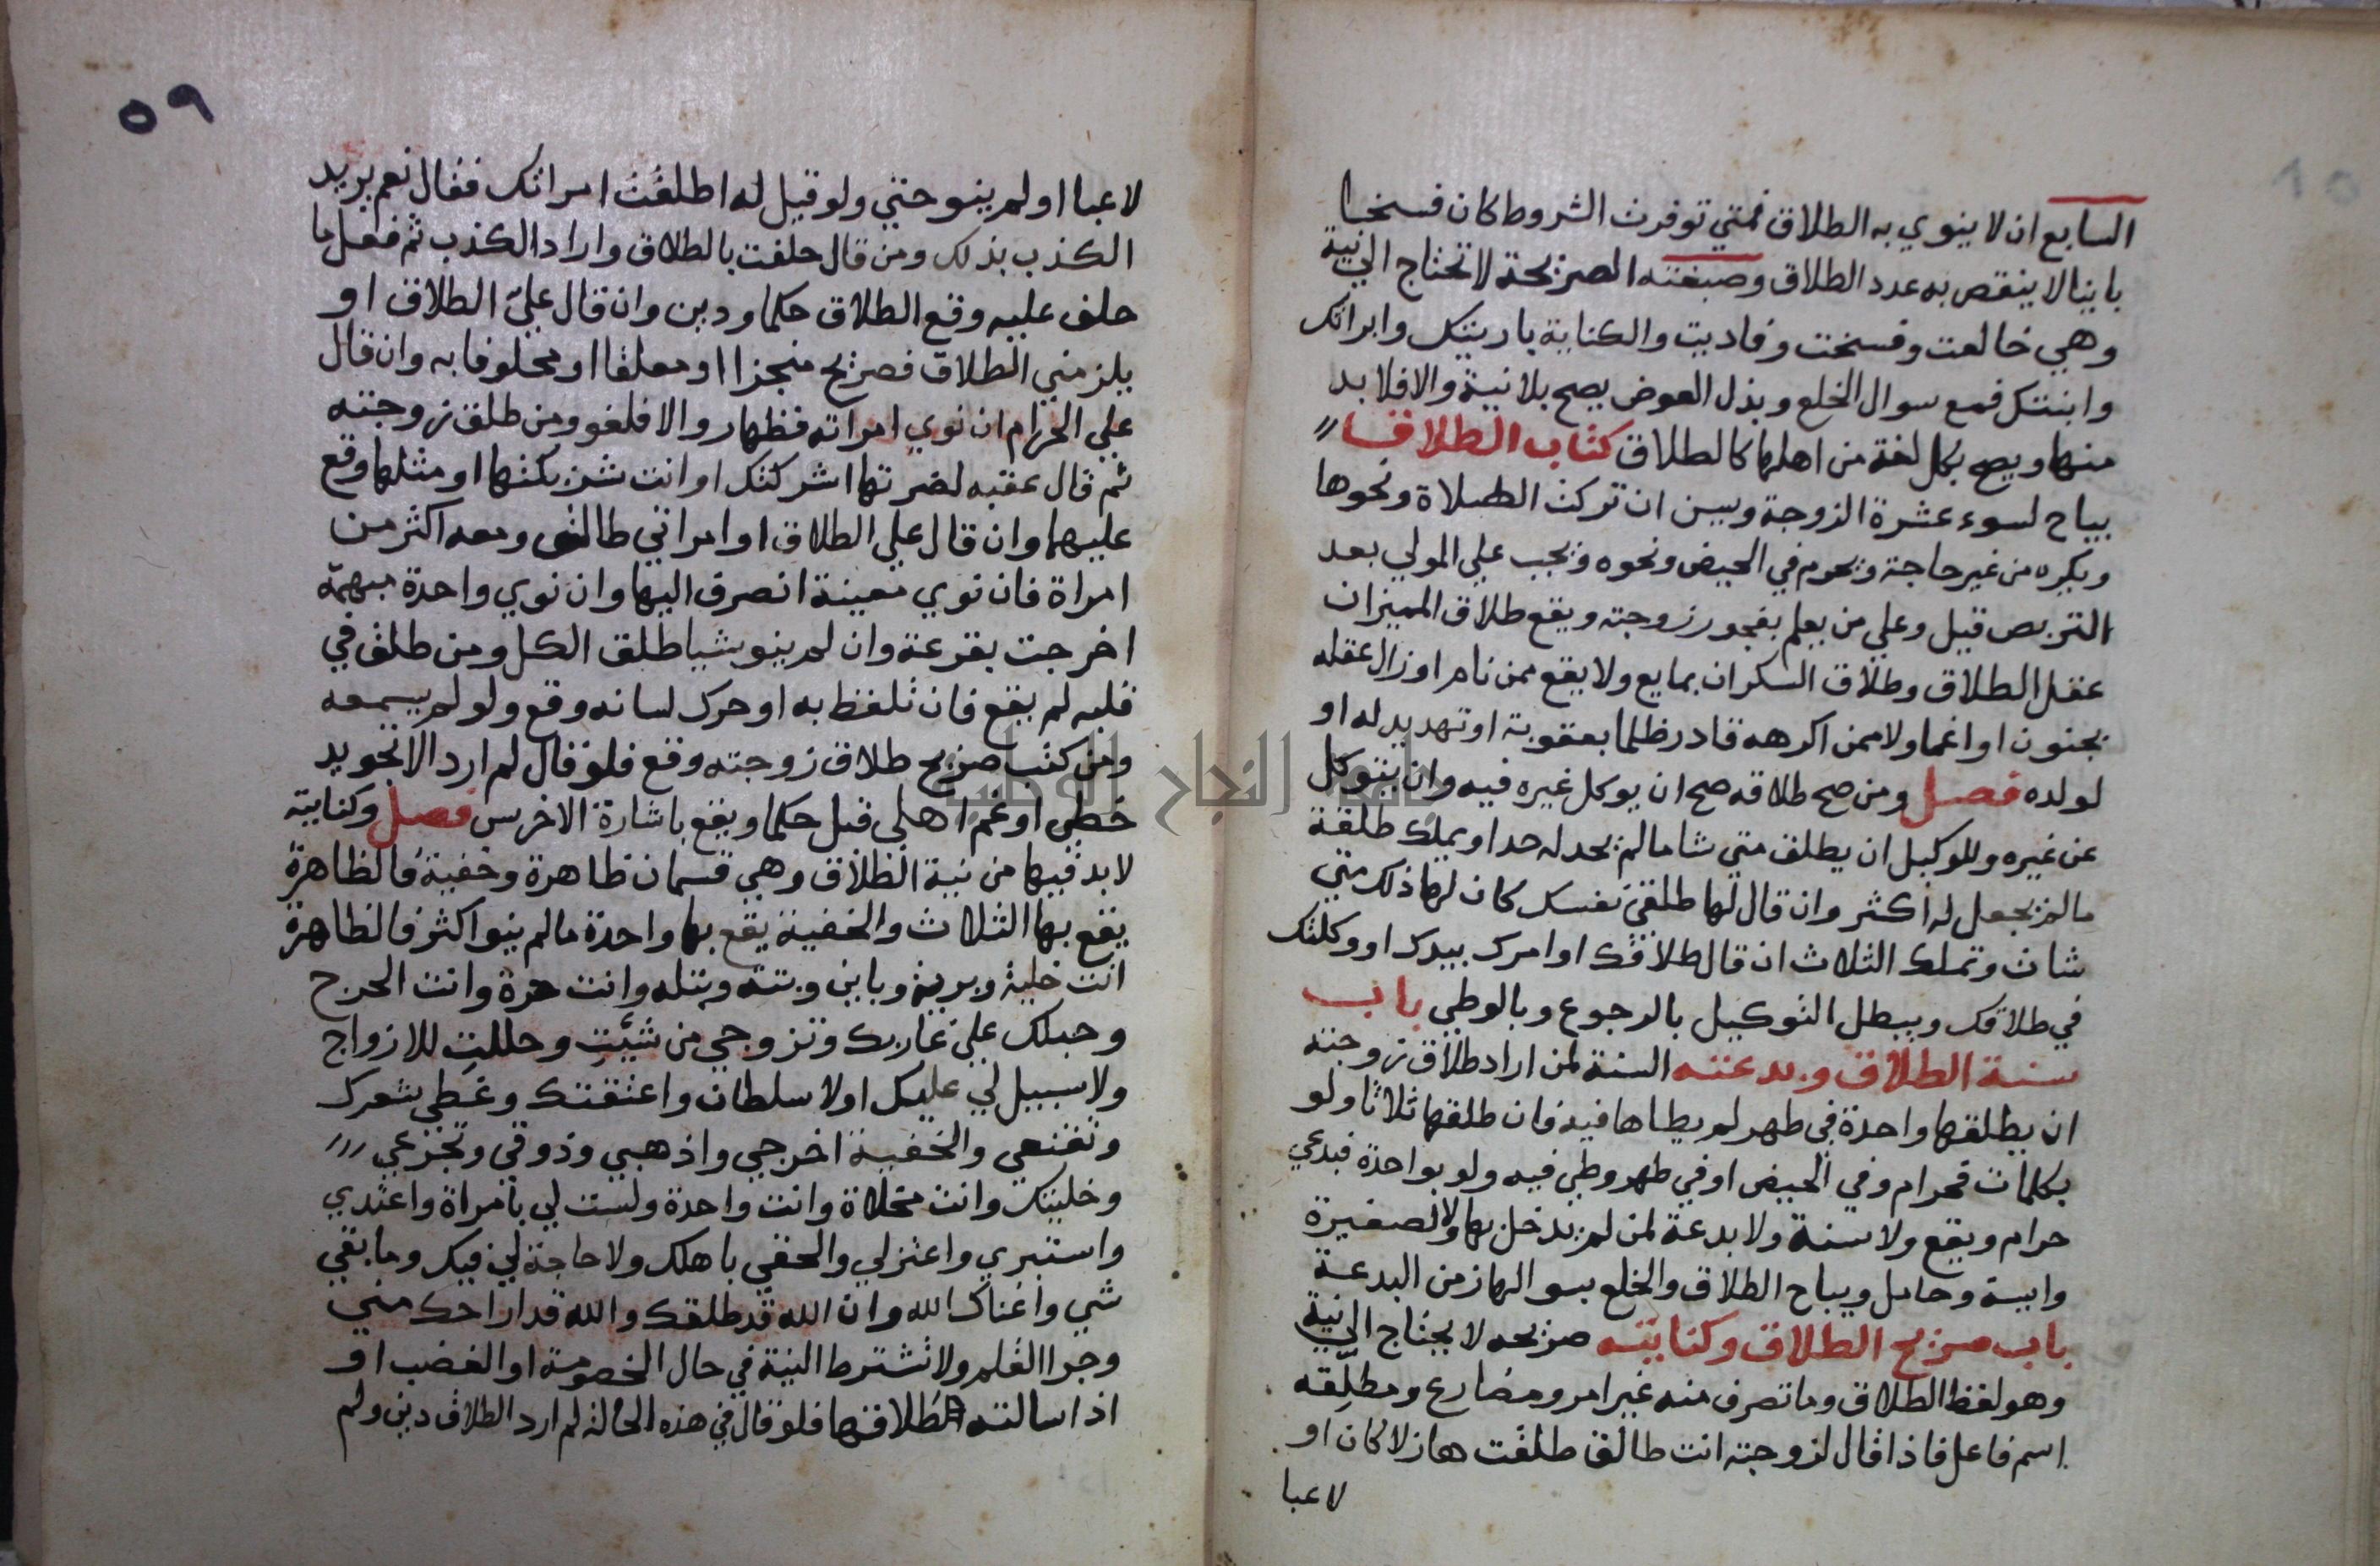 السابع ان لا ينوي به الطلاق فمتي توفرت الشروط كان فسخا
باينا لا ينقص به عدد الطلاق وصيغته الصريحة لا تحتاج الي نية
وهي خالعت وفسخت وفاديت والكناية باريتك وابراتك
وابنتك فمع سوال الخلع وبذل العوض يصح بلا نية والا فلا بد
منها ويصح بكل لغة من اهلها كالطلاق كتاب الطلاق
يباح لسوء عشرة الزوجة ويسن ان تركت الصلاة ونحوها
ويكره من غير حاجة ويحرم في الحيض ونحوه ويجب علي المولي بعد
التربص قيل وعلي من يعلم بفجور زوجته ويقع طلاق المميز ان
عقل الطلاق وطلاق السكران بمايع ولا يقع ممن نام او زال عقله
بجنون او اغما ولا ممن اكرهه قادر ظلما بعقوبة او تهديد له او
لولده فصل ومن صح طلاقه صح ان يوكل غيره فيه وان يتوكل
عن غيره وللوكيل ان يطلق متي شا ما لم يحد له حدا ويملك طلقة
ما لم يجعل له اكثر وان قال لها طلقي نفسك كان لها ذلك متي
شات وتملك الثلاث ان قال طلاقك او امرك بيدك او وكلتك
في طلاقك ويبطل التوكيل بالرجوع وبالوطي باب
سنة الطلاق وبدعته السنة لمن اراد طلاق زوجته
ان يطلقها واحدة في طهر لم يطاها فيه فان طلقها ثلاثا ولو
بكلمات فحرام وفي الحيض او في طهر وطي فيه ولو بواحدة فبدعي
حرام ويقع ولا سنة ولا بدعة لمن لم يدخل بها ولا لصغيرة
وايسة وحامل ويباح الطلاق والخلع بسوالها زمن البدعة
باب صريح الطلاق وكنايته صريحه لا يحتاج الي نية
وهو لفظ الطلاق وما تصرف منه غير امر ومضارع ومطلِّقه
اسم فاعل فاذا قال لزوجته انت طالق طلقت هازلا كان او
لاعبا
٥٩
لاعبا او لم ينو حتي ولو قيل له اطلقتَ امراتك فقال نعم يريد
الكذب بذلك ومن قال حلفت بالطلاق واراد الكذب ثم فعل ما
حلف عليه وقع الطلاق حكما ودين وان قال عليّ الطلاق او
يلزمني الطلاق فصريح منجزا او معلقا او محلوفا به وان قال
علي الحرام ان نوي امراته فظهار والا فلغو ومن طلق زوجته
ثم قال عقبه لضرتها اشركتك او انت شريكتها او مثلها وقع
عليهما وان قال علي الطلاق او امراتي طالق ومعه اكثر من
امراة فان نوي معينة انصرف اليها وان نوي واحدة مبهمة
اخرجت بقرعة وان لم ينو شيا طلق الكل ومن طلق في
قلبه لم يقع فان تلفظ به او حرك لسانه وقع ولو لم يسمعه
ومن كتب صريح طلاق زوجته وقع فلو قال لم ارد الا تجويد
خطي او غم اهلي قبل حكما ويقع باشارة الاخرس فصل وكنايته
لا بد فيها من نية الطلاق وهي قسمان ظاهرة وخفية فالظاهرة
يقع بها الثلاث والخفية يقع بها واحدة ما لم ينو اكثر فالظاهرة
انت خلية وبرية وباين وبتة وبتله وانت حرة وانت الحرج
وحبلك علي غاربك وتزوجي من شيت وحللت للازواج
ولا سبيل لي عليك او لا سلطان واعتقتك وغطي شعرك
وتقنعي والخفية اخرجي واذهبي وذوقي وتجرعي
وخليتك وانت مخلاة وانت واحدة ولست لي بامراة واعتدي
واستبري واعتزلي والحقي باهلك ولا حاجة لي فيك وما بقي
شي واغناك الله وان الله قد طلقك والله قد اراحك مني
وجرا القلم ولا تشترط النية في حال الخصومة او الغضب او
اذا سالته طلاقها فلو قال في هذه الحالة لم ارد الطلاق دين ولم
جامعة النجاح الوطنية